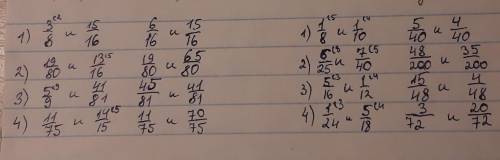 1) 3/8⁽² и 15/16 6/16 и 15/16
2) 19/80 и 13/16⁽⁵ 19/80 и 65/80
3) 5/9⁽⁹ и 41/81 45/81 и 41/81
4) 11/75 и 14/15⁽⁵ 11/75 и 70/75
1) 1/8⁽⁵ и 1/10⁽⁴ 5/40 и 4/40
2) 6/25⁽⁸ и 7/40⁽⁵ 48/200 и 35/200
3) 5/16⁽³ и 1/12⁽⁴ 15/48 и 4/48
4) 1/24⁽³ и 5/18⁽⁴ 3/72 и 20/72